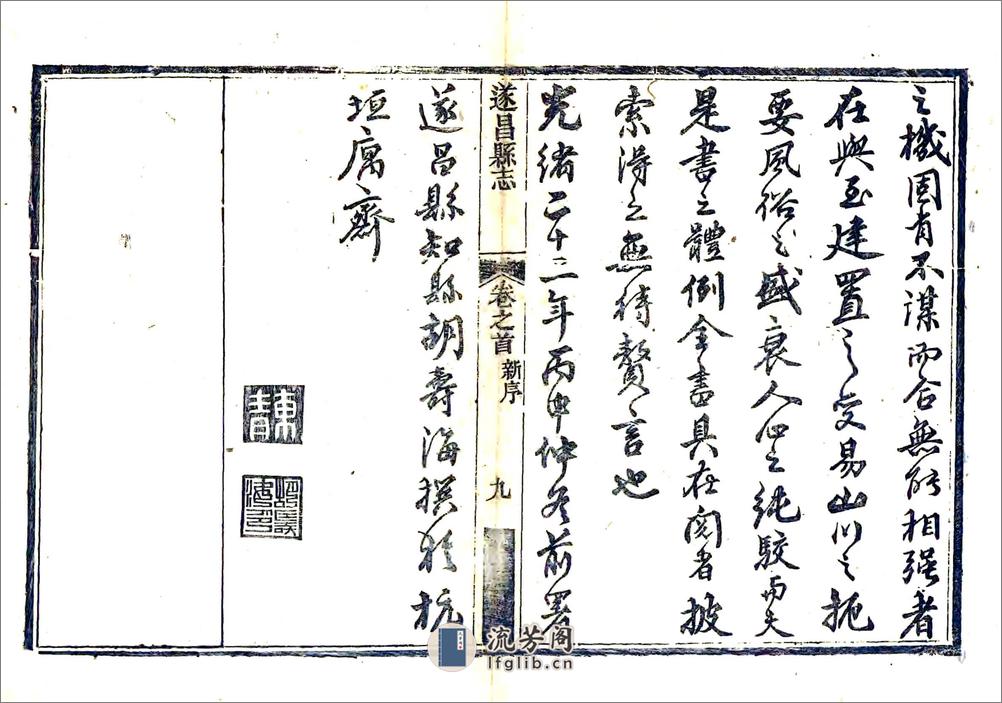 之機固有不謀而合無能相強者
在與至建置之變易山川之扼
要風俗之盛衰人心之純駁而夫
是書之體例全書具在閱者披
索得之無待贅言也
光緒二十二年丙申仲冬前署
遂昌縣志
卷之首
新序
九
遂昌縣知縣胡壽海撰於杭
垣寓齋
流芳阁
lfglib.cn